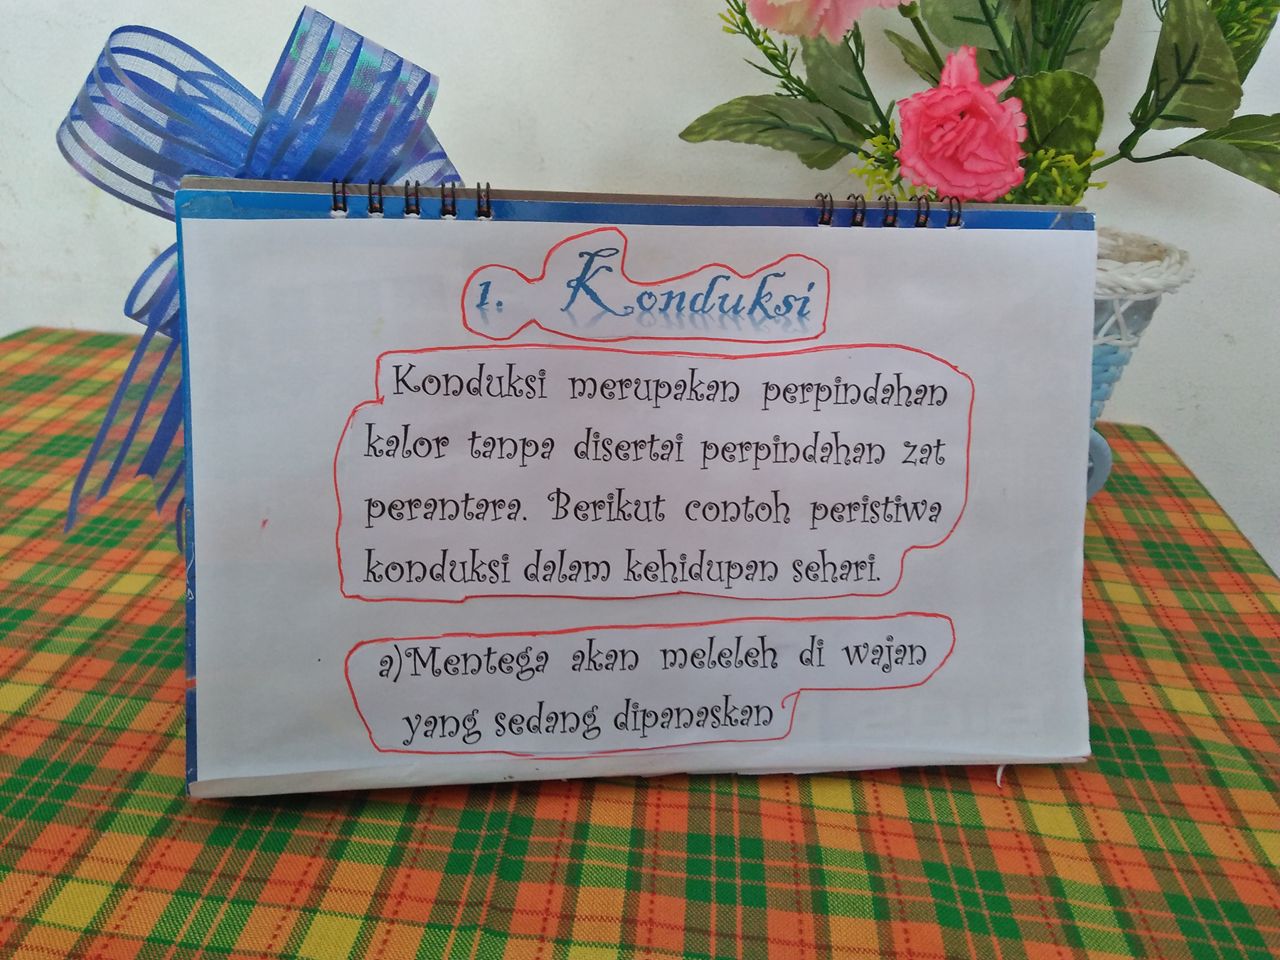 1. Konduksi
Konduksi merupakan perpindahan
kalor tanpa disertai perpindahan zat
perantara. Berikut contoh peristiwa
konduksi dalam kehidupan sehari.
a)Mentega akan meleleh di wajan
yang sedang dipanaskan